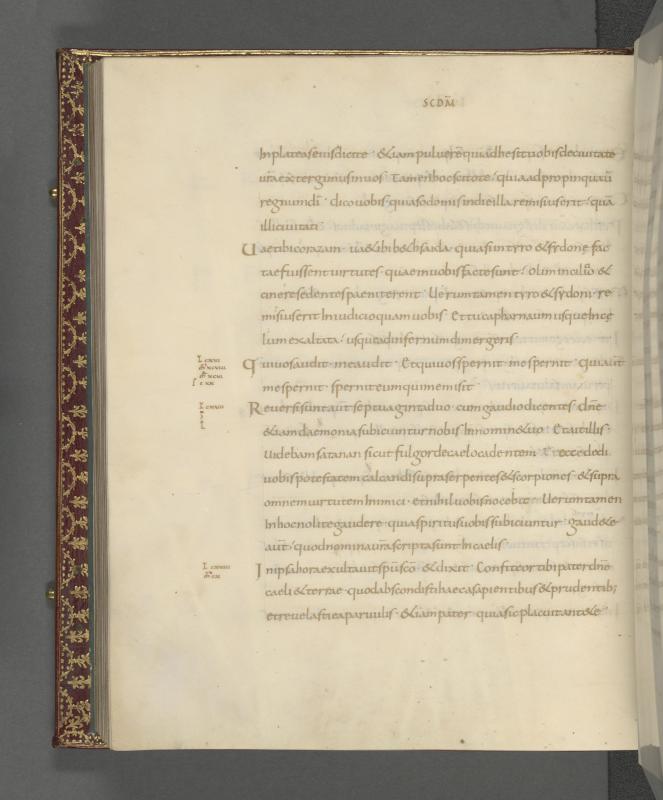 SCDM̄
In plateas eius dicite · & iam pulverē qui adhesit vobis de civitate
urā extergimus in vos Tamen hoc scitote · quia adpropinquavit
regnum dī · dico vobis quia sodomis in die illa remisius erit · quā
illi civitati
Vae tibi corazain · vae tibi bethsaida · quia si in tyro & sydone fac
tae fuissent virtutes · quae in vobis factae sunt · olim in cilicio &
cinere sedentes paeniterent Verumtamen tyro & sydoni re
missius erit In iudicio quam vobis Et tu capharnaum usque In cę
lum exaltata · usque ad infernum dimergeris
Qui vos audit · me audit · Et qui vos spernit · me spernit · Qui aūt
me spernit · spernit eum qui me misit
Reversi sunt aūt septuaginta duo · cum gaudio dicentes · dn̄e
& iam daemonia subiciuntur nobis In nomine tuo Et ait illis
Videbam satanan sicut fulgor de caelo cadentem Et ecce dedi
vobis potestatem calcandi supra serpentes & scorpiones · & supra
omnem virtutem Inimici · et nihil vobis nocebit Verumtamen
In hoc nolite gaudere · quia spiritus vobis subiciuntur · gaudete
aūt · quod nomina vrā scripta sunt In caelis
In ipsa hora exultavit spū scō · & dixit Confiteor tibi pater dn̄e
caeli & terrae · quod abscondisti haec a sapientibus & prudentib;
et revelasti ea parvulis · & iam pater · quia sic placuit ante te